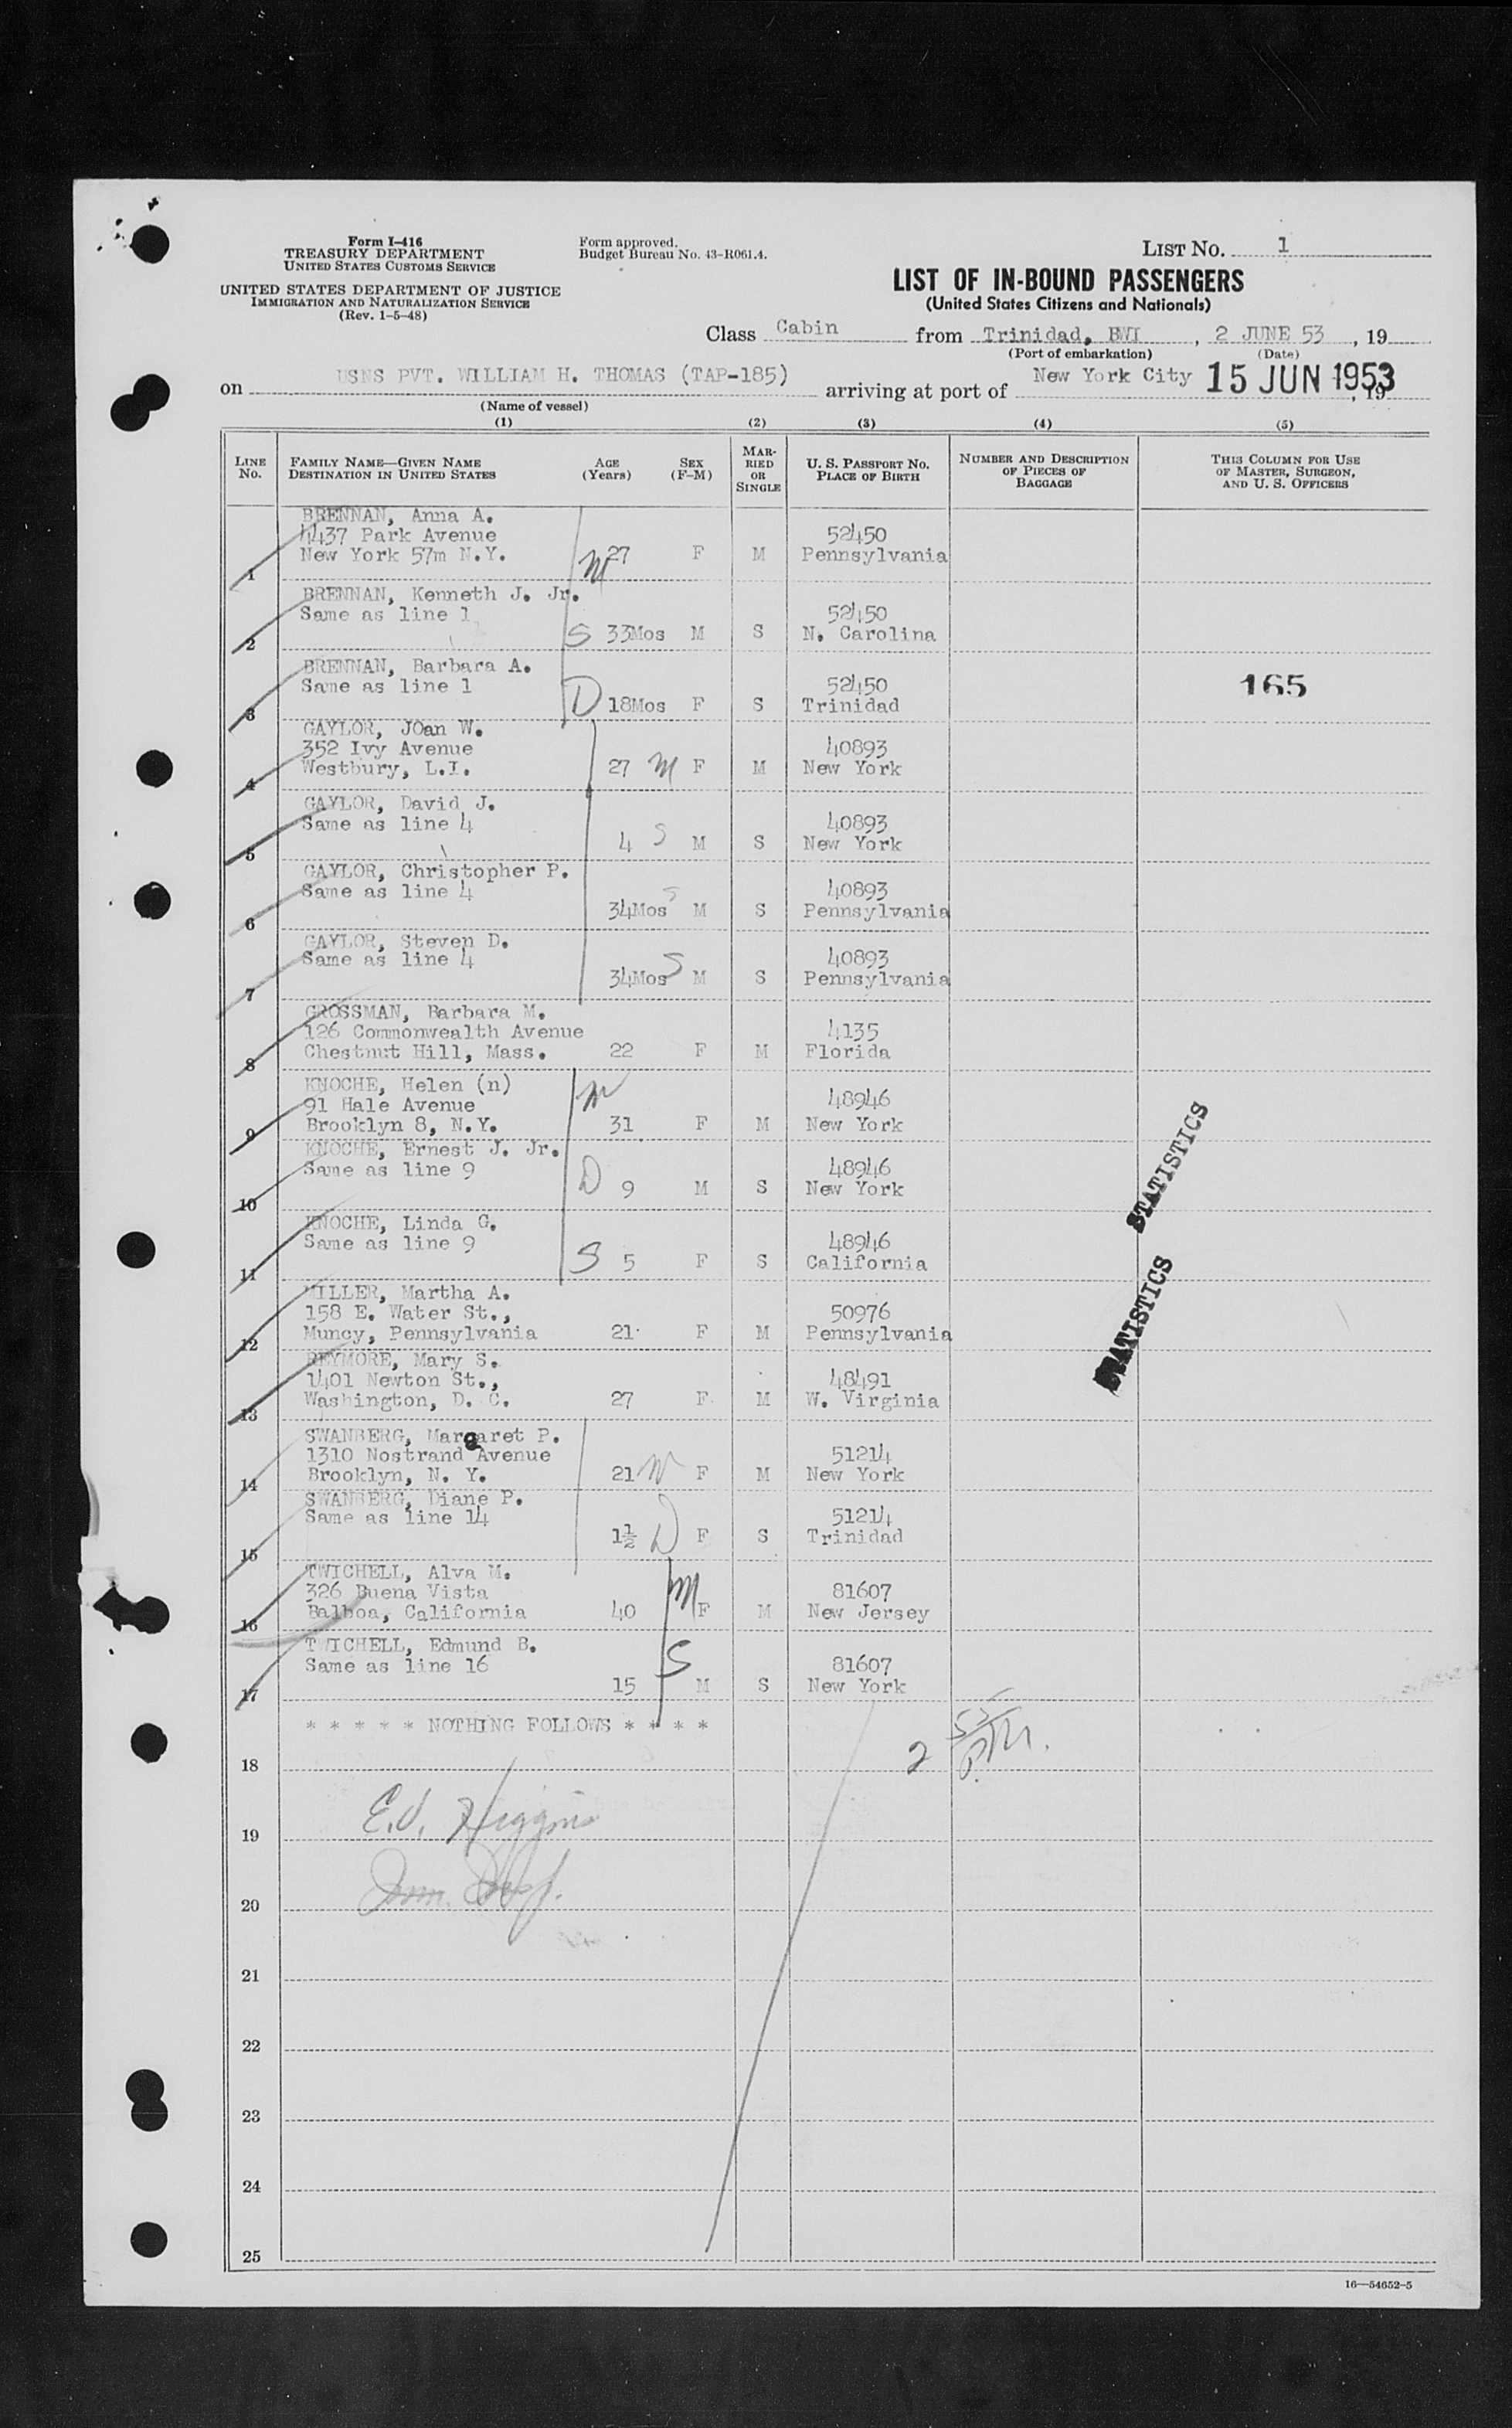 Form I-416
TREASURY DEPARTMENT
UNITED STATES CUSTOMS SERVICE
UNITED STATES DEPARTMENT OF JUSTICE
IMMIGRATION AND NATURALIZATION SERVICE
(Rev. 1-5-48)
Form approved.
Budget Bureau No. 43-R061.4.
LIST NO. 1
LIST OF IN-BOUND PASSENGERS
(United States Citizens and Nationals)
Class Cabin from Trinidad, BWI, 2 JUNE 53, 19
(Port of embarkation) (Date)
on USNS PVT. WILLIAM H. THOMAS (TAP-185) arriving at port of New York City 15 JUN 1953, 19
(Name of vessel)
(1) (2) (3) (4) (5)
LINE NO.
FAMILY NAME—GIVEN NAME
DESTINATION IN UNITED STATES
AGE (Years)
SEX (F-M)
MARRIED OR SINGLE
U. S. PASSPORT NO.
PLACE OF BIRTH
NUMBER AND DESCRIPTION OF PIECES OF BAGGAGE
THIS COLUMN FOR USE OF MASTER, SURGEON, AND U. S. OFFICERS
BRENNAN, Anna A.
4437 Park Avenue 52450
New York 57m N.Y. M 27 F M Pennsylvania
1
BRENNAN, Kenneth J. Jr.
Same as line 1 52450
2 S 33Mos M S N. Carolina
BRENNAN, Barbara A.
Same as line 1 52450 165
3 D 18Mos F S Trinidad
GAYLOR, JOan W.
352 Ivy Avenue 40893
Westbury, L.I. 27 M F M New York
4
GAYLOR, David J.
Same as line 4 40893
5 4 S M S New York
GAYLOR, Christopher P.
Same as line 4 40893
6 34Mos S M S Pennsylvania
GAYLOR, Steven D.
Same as line 4 40893
7 34Mos S M S Pennsylvania
GROSSMAN, Barbara M.
126 Commonwealth Avenue 4135
Chestnut Hill, Mass. 22 F M Florida
8
KNOCHE, Helen (n) M
91 Hale Avenue 48946
Brooklyn 8, N.Y. 31 F M New York
9
KNOCHE, Ernest J. Jr.
Same as line 9 48946
10 D 9 M S New York
KNOCHE, Linda G.
Same as line 9 48946
11 S 5 F S California
STATISTICS
STATISTICS
MILLER, Martha A.
158 E. Water St., 50976
Muncy, Pennsylvania 21 F M Pennsylvania
12
REYMORE, Mary S.
1401 Newton St., 48491
Washington, D. C. 27 F M W. Virginia
13
SWANBERG, Margaret P.
1310 Nostrand Avenue 51214
Brooklyn, N. Y. 21 M F M New York
14
SWANBERG, Diane P.
Same as line 14 51214
15 1½ D F S Trinidad
TWICHELL, Alva M.
326 Buena Vista 81607
Balboa, California 40 M F M New Jersey
16
TWICHELL, Edmund B.
Same as line 16 81607
17 15 S M S New York
* * * * * NOTHING FOLLOWS * * * *
18 2
19 E.J. Higgins
20
21
22
23
24
25
16—54652-5